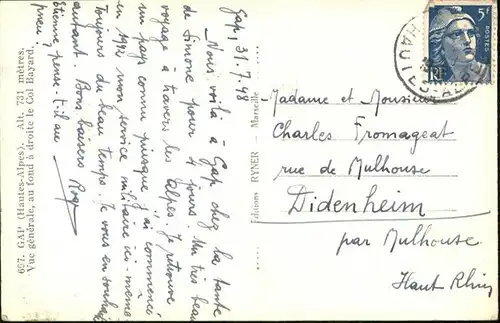 Gap, 31.7.48
Nous voilà à Gap chez la tante
de Simone pour 4 jours. Un très beau
voyage à travers les Alpes. Je retrouve
un pays connu puisque j'ai commencé
en 1942 mon service militaire ici-même
Toujours du beau temps. Je vous en souhaite
autant. Bons baisers Roger
Etienne pense-t-il au
pneu ?
697. GAP (Hautes-Alpes). Alt. 731 mètres.
Vue générale, au fond à droite le Col Bayard.
Editions RYNER - Marseille
5F
POSTES
RF
HAUTES-ALPES
Madame et Monsieur
Charles Fromageat
rue de Mulhouse
Didenheim
par Mulhouse
Haut Rhin